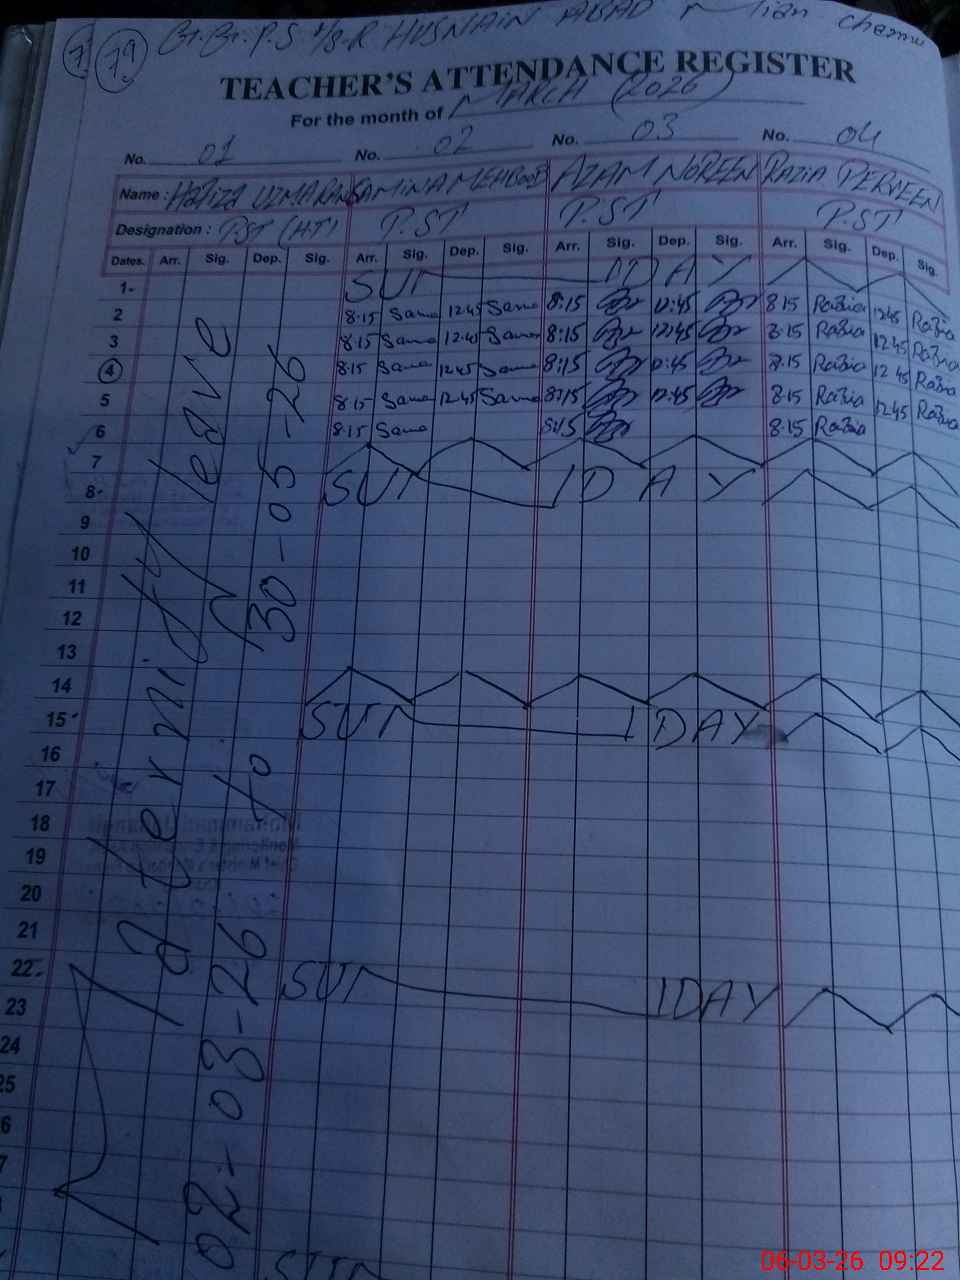 79 Gt. Gr. P.S 4/8-R HUSNAIN ABAD Mian Channu
TEACHER'S ATTENDANCE REGISTER
For the month of MARCH (2026)
No. 01 No. 02 No. 03 No. 04
Name: Hafiza UZMA RANI SAMINA MEHBOOB AZAM NOREEN RAZIA PERVEEN
Designation: PST (HT) P.ST P.ST P.ST
Dates. Arr. Sig. Dep. Sig. Arr. Sig. Dep. Sig. Arr. Sig. Dep. Sig. Arr. Sig. Dep. Sig.
1- SUN DAY
2 8:15 Sama 12:45 Sama 8:15 12:45 8:15 Razia 12:45 Razia
3 8:15 Sama 12:45 Sama 8:15 12:45 8:15 Razia 12:45 Razia
4 8:15 Sama 12:45 Sama 8:15 12:45 8:15 Razia 12:45 Razia
5 8:15 Sama 12:45 Sama 8:15 12:45 8:15 Razia 12:45 Razia
6 8:15 Sama 8:15 8:15 Razia
7
8- SUN DAY
9
10
11
12
13
14
15 SUN DAY
16
17
18
19
20
21
22 SUN DAY
23
24
25
SUN
Maternity leave
02-03-26 to 30-05-26
06-03-26 09:22